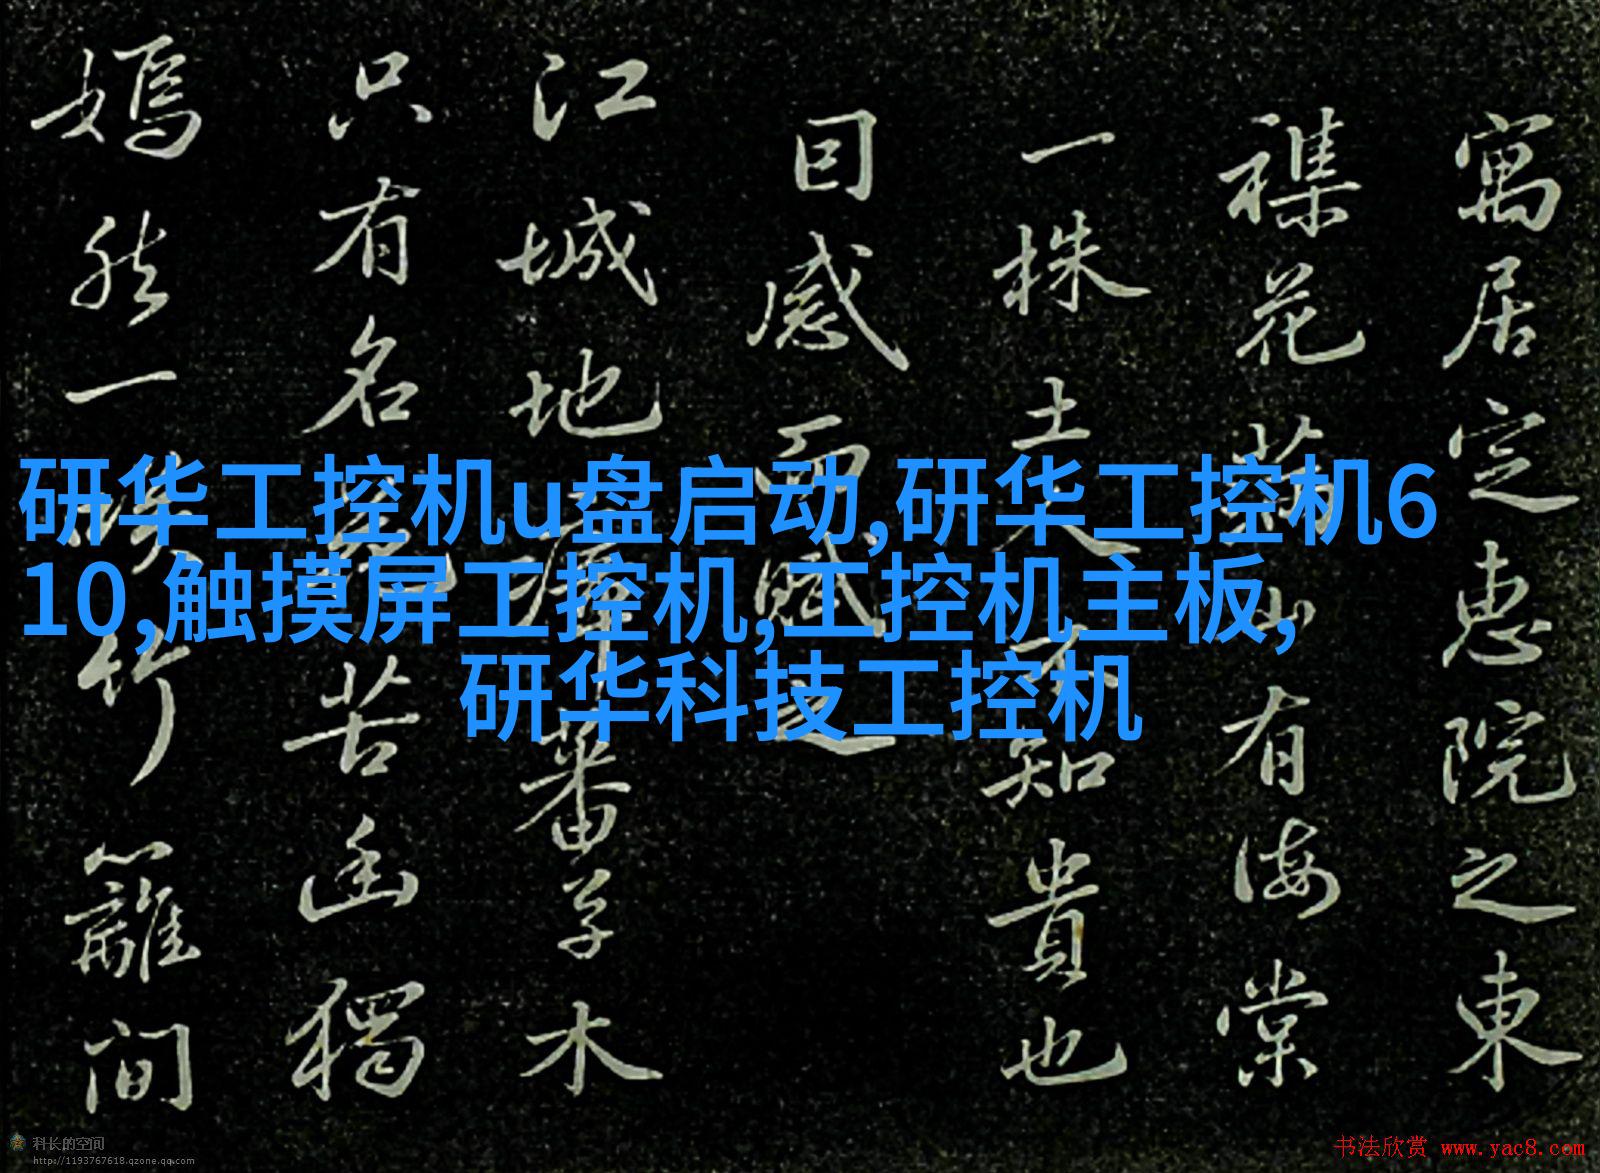 寓居定惠院之東
襍花滿山有海棠
一株土人不知貴也
因感而賦之
江城地瘴蕃草木
只有名花苦幽獨
嫣然一笑竹籬間
研华工控机u盘启动,研华工控机6
10,触摸屏工控机,工控机主板,
研华科技工控机
科长的空间
http://1193767618.qzone.qq.com
书法欣赏 www.yac8.com